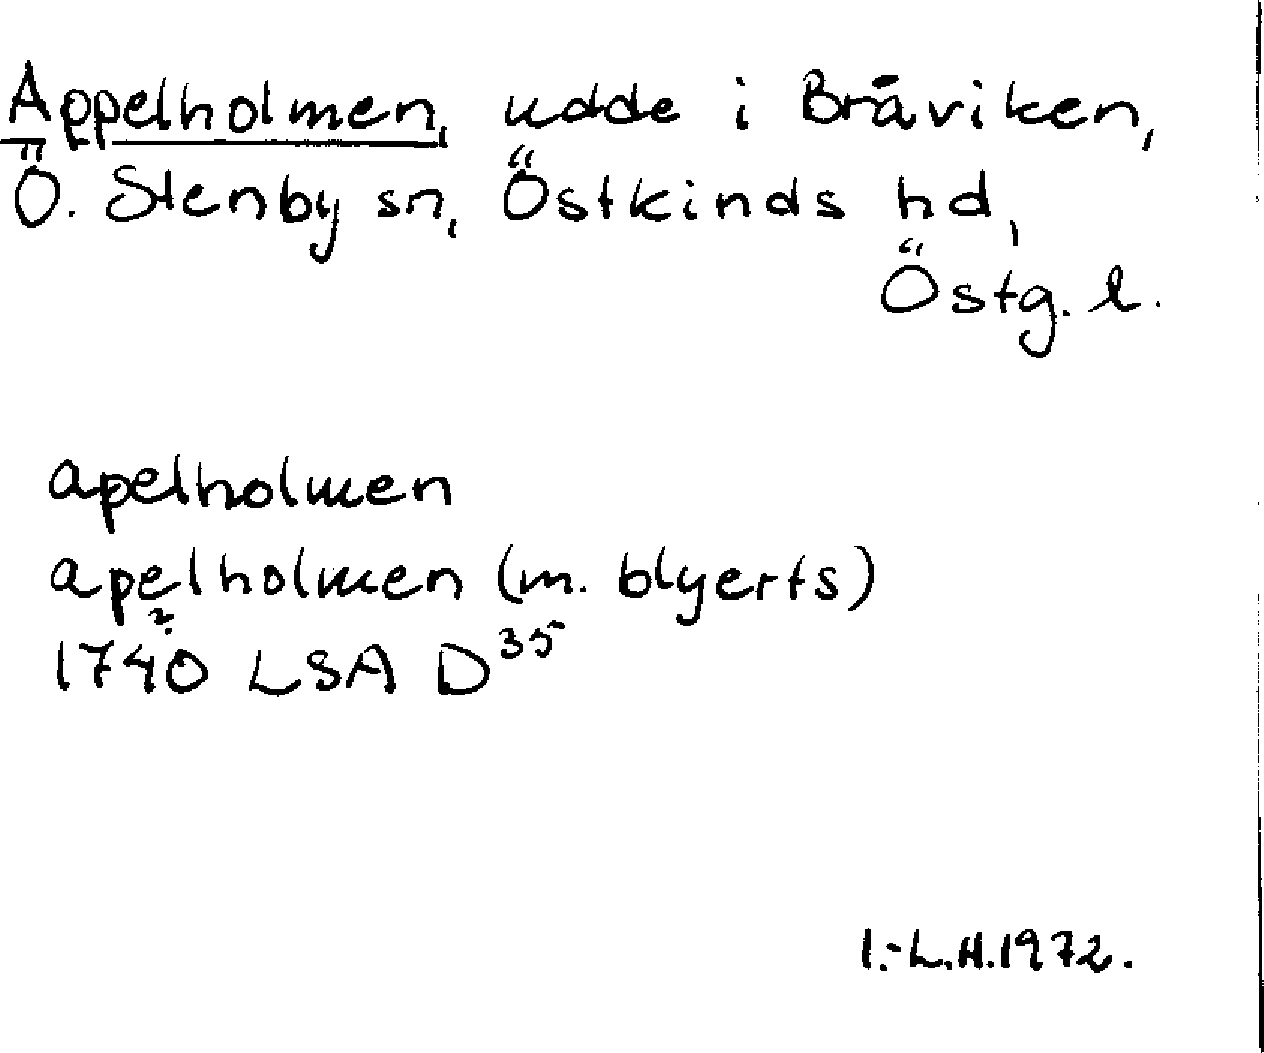 Appelholmen, udde i Bråviken,
Ö. Stenby sn, Östkinds hd,
Östg. l.
apelholmen
apelholmen (m. blyerts)
?
1740 LSA D35
I.-L.H.1972.